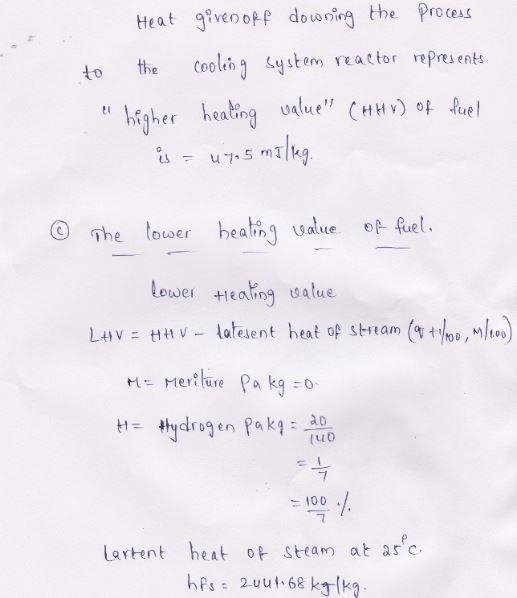 Heat givenoff downing the process
to the cooling system reactor represents.
"higher heating value" (HHV) of fuel
is = 47.5 mJ/kg.
(c) The lower heating value of fuel.
lower Heating value
LHV = HHV - latesent heat of stream (9 + H/100, M/100)
M = Meriture Pa kg = 0.
H = Hydrogen Pakg = 20/140
= 1/7
= 100/7 %.
Lartent heat of steam at 25°c.
hfs = 2441.68 kg/kg.